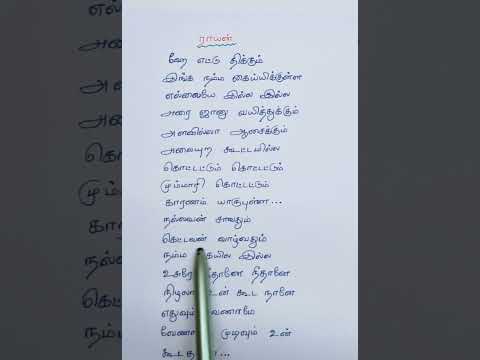 ராயன்
வேற எட்டு திக்கும்
இங்க நம்ம கைய்யிக்குள்ள
எல்லையே இல்ல இல்ல
அரை ஜானு வயித்துக்கும்
அளவில்லா ஆசைக்கும்
அலையுற கூட்டமில்ல
கொட்டட்டும் கொட்டட்டும்
மும்மாரி கொட்டட்டும்
காரணம் யாருபுள்ள...
நல்லவன் சாவதும்
கெட்டவன் வாழ்வதும்
நம்ம இல்ல
நீதானே
உன் கூட நானே
எதுவும்
முடிவும் உன்
கூட